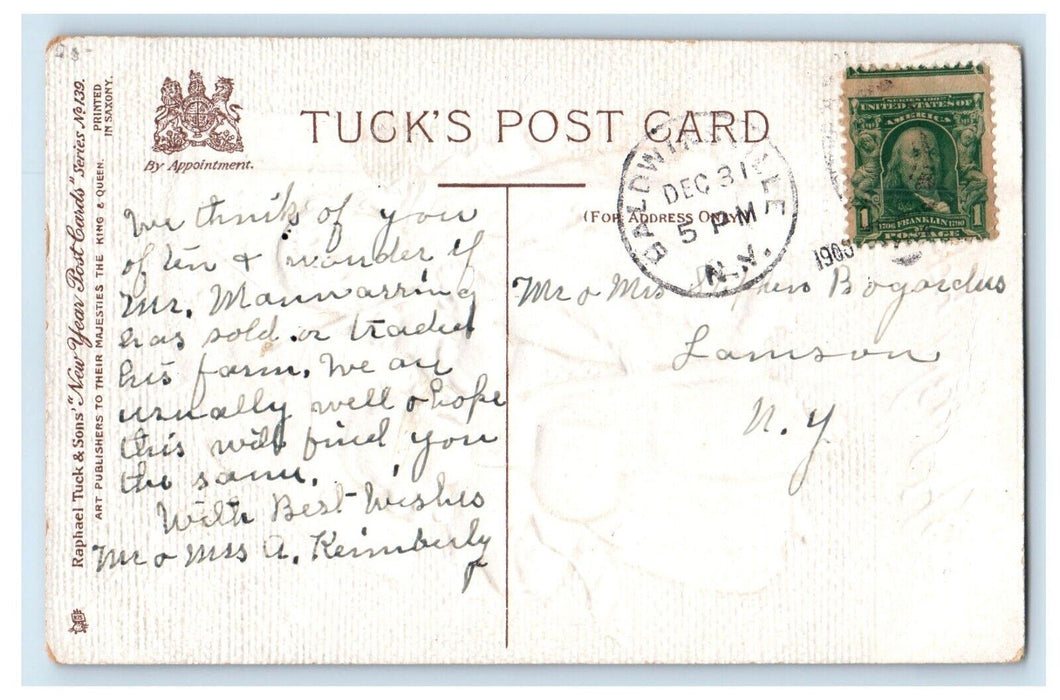 Raphael Tuck & Sons' "New Year Post Cards" Series No. 139.
ART PUBLISHERS TO THEIR MAJESTIES THE KING & QUEEN.
PRINTED
IN SAXONY.
By Appointment.
TUCK'S POST CARD
(FOR ADDRESS ONLY)
BALDWINSVILLE
DEC 31
5 PM
N.Y.
SERIES 1902
UNITED STATES OF
AMERICA
1 1
1706 FRANKLIN 1790
POSTAGE
We think of you
often & wonder if
Mr. Manwarring
has sold or traded
his farm. We are
usually well & hope
this will find you
the same.
With Best Wishes
Mr & Mrs A. Keimberly
Mr & Mrs Bogardus
Lamson
N. Y